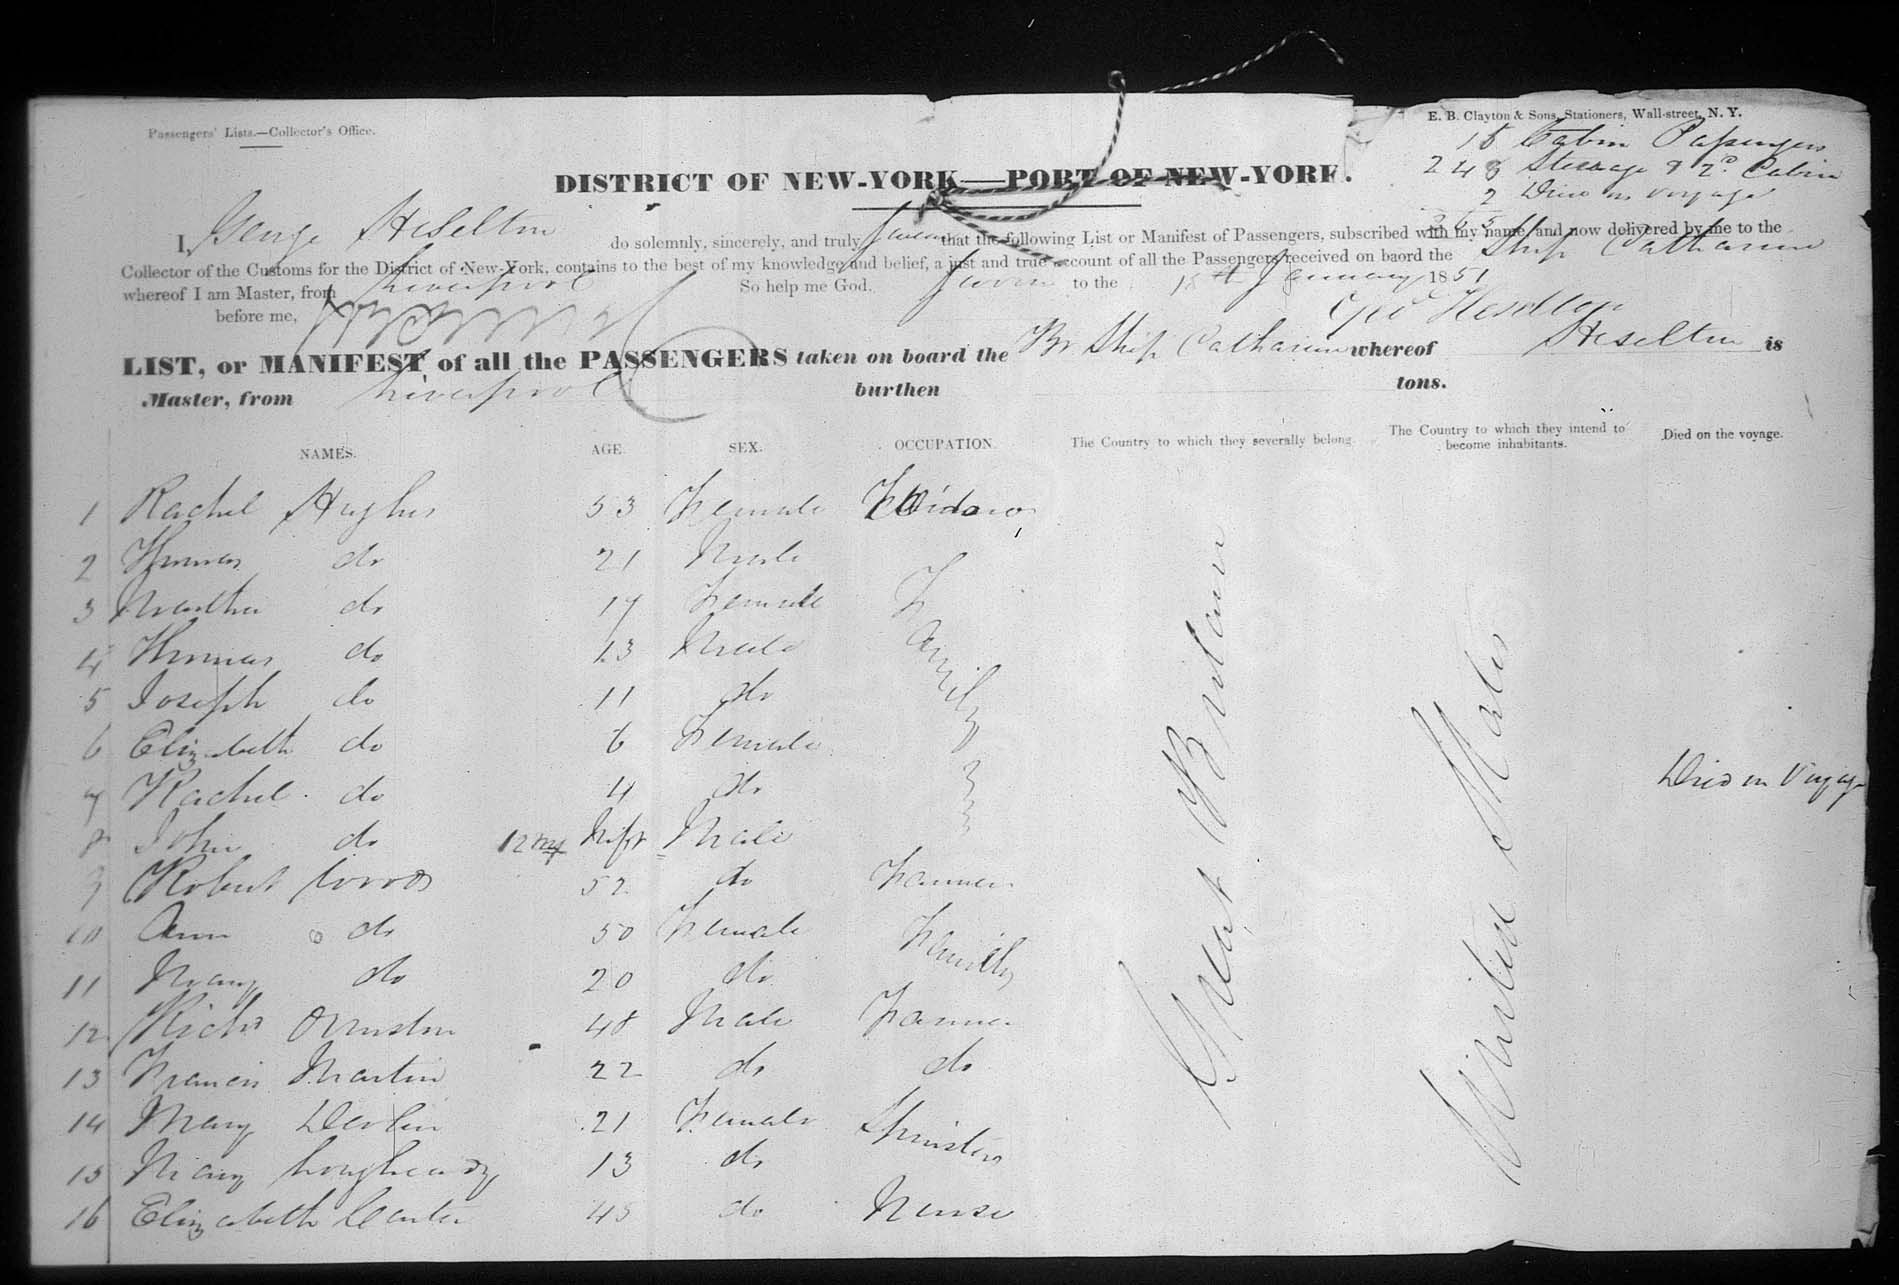 Passengers' Lists.—Collector's Office.
E. B. Clayton & Sons, Stationers, Wall-street, N. Y.
18 Cabin Passengers
248 Steerage & 2d Cabin
2 Died on voyage
DISTRICT OF NEW-YORK—PORT OF NEW-YORK.
I, George Heselton do solemnly, sincerely, and truly swear that the following List or Manifest of Passengers, subscribed with my name, and now delivered by me to the
Collector of the Customs for the District of New-York, contains to the best of my knowledge and belief, a just and true account of all the Passengers received on baord the Ship Catharine
whereof I am Master, from Liverpool So help me God. Sworn to the 18th January 1851
before me, Geo Heselton
LIST, or MANIFEST of all the PASSENGERS taken on board the Br Ship Catharine whereof Heselton is
Master, from Liverpool burthen tons.
NAMES. AGE. SEX. OCCUPATION. The Country to which they severally belong. The Country to which they intend to become inhabitants. Died on the voyage.
1 Rachel Hughes 53 Female Widow
2 Thomas do 21 Male
3 Martha do 17 Female Family
4 Thomas do 13 Male
5 Joseph do 11 do
6 Elizabeth do 6 Female
7 Rachel do 4 do Died on Voyage
8 John do 12 Inft Male
9 Robert Woods 52 do Farmer
10 Ann do 50 Female Family
11 Mary do 20 do
12 Richd Ormston 48 Male Farmer
13 Francis Martin 22 do do
14 Mary Devlin 21 Female Spinsters
15 Mary 13 do
16 Elizabeth Carter 45 do Nurse
Great Britain
United States